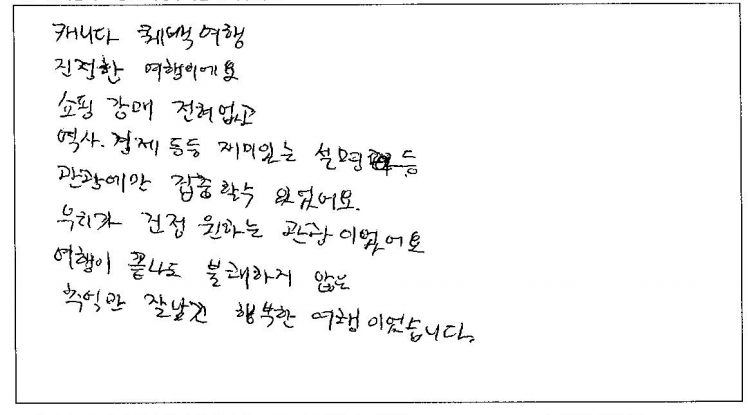 캐나다 퀘백 여행
진정한 여행이에요
쇼핑 강매 전혀 없고
역사. 경제 등등 재미있는 설명 등
관광에만 집중 할수 있었어요.
우리가 진정 원하는 관광 이었어요
여행이 끝나도 불쾌하지 않은
추억만 잘남긴 행복한 여행 이었습니다.